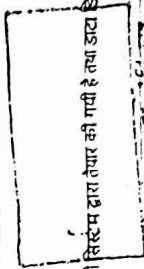 सिस्टम द्वारा तैयार की गयी है तथा डाटा